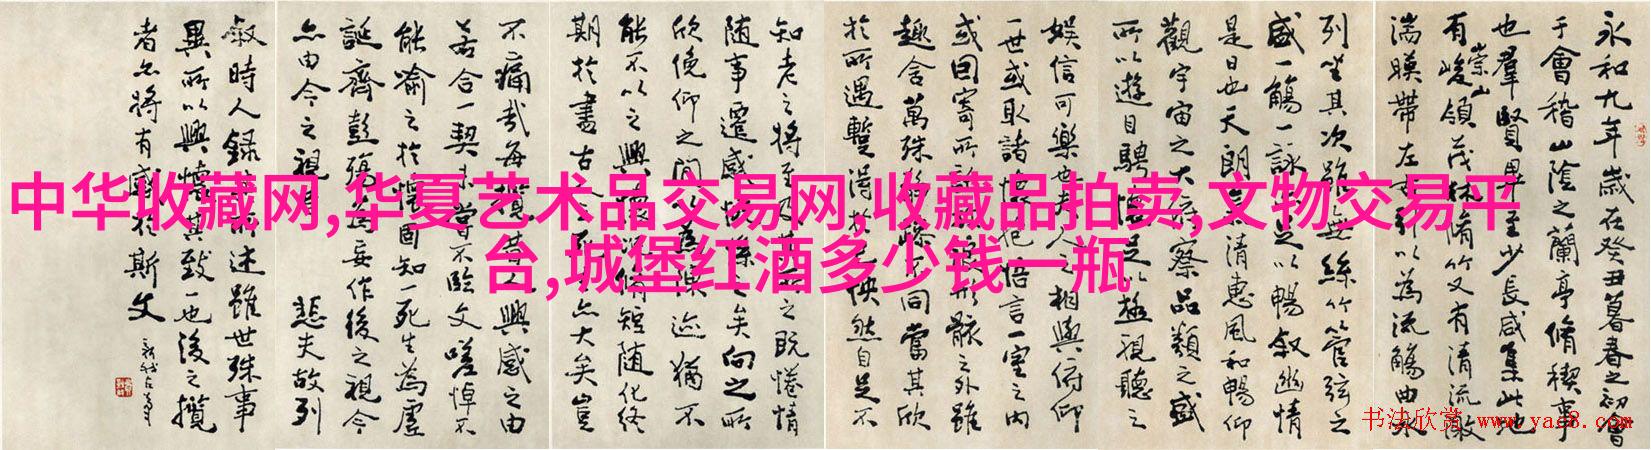 中华收藏网,华夏艺术品交易网,收藏品拍卖,文物交易平
台,城堡红酒多少钱一瓶
永和九年歲在癸丑暮春之初會
于會稽山陰之蘭亭脩稧事
也羣賢畢至少長咸集此地
有崇山峻領茂林脩竹又有清流激
湍暎帶左右引以為流觴曲水
列坐其次雖無絲竹管弦之
盛一觴一詠亦足以暢敘幽情
是日也天朗氣清惠風和暢仰
觀宇宙之大俯察品類之盛
所以遊目騁懷足以極視聽之
娛信可樂也夫人之相與俯仰
一世或取諸懷抱悟言一室之內
或因寄所託放浪形骸之外雖
趣舍萬殊靜躁不同當其欣
於所遇暫得於己怏然自足不
知老之將至及其所之既惓情
随事遷感慨係之矣向之所
欣俛仰之間以為陳迹猶不
能不以之興懷況脩短随化終
期於盡古人云死生亦大矣豈
不痛哉每攬昔人興感之由
若合一契未嘗不臨文嗟悼不
能喻之於懷固知一死生為虛
誕齊彭殤為妄作後之視今
亦由今之視昔悲夫故列
敘時人錄其所述雖世殊事
異所以興懷其致一也後之攬
者亦將有感於斯文
书法欣赏 www.yac8.com